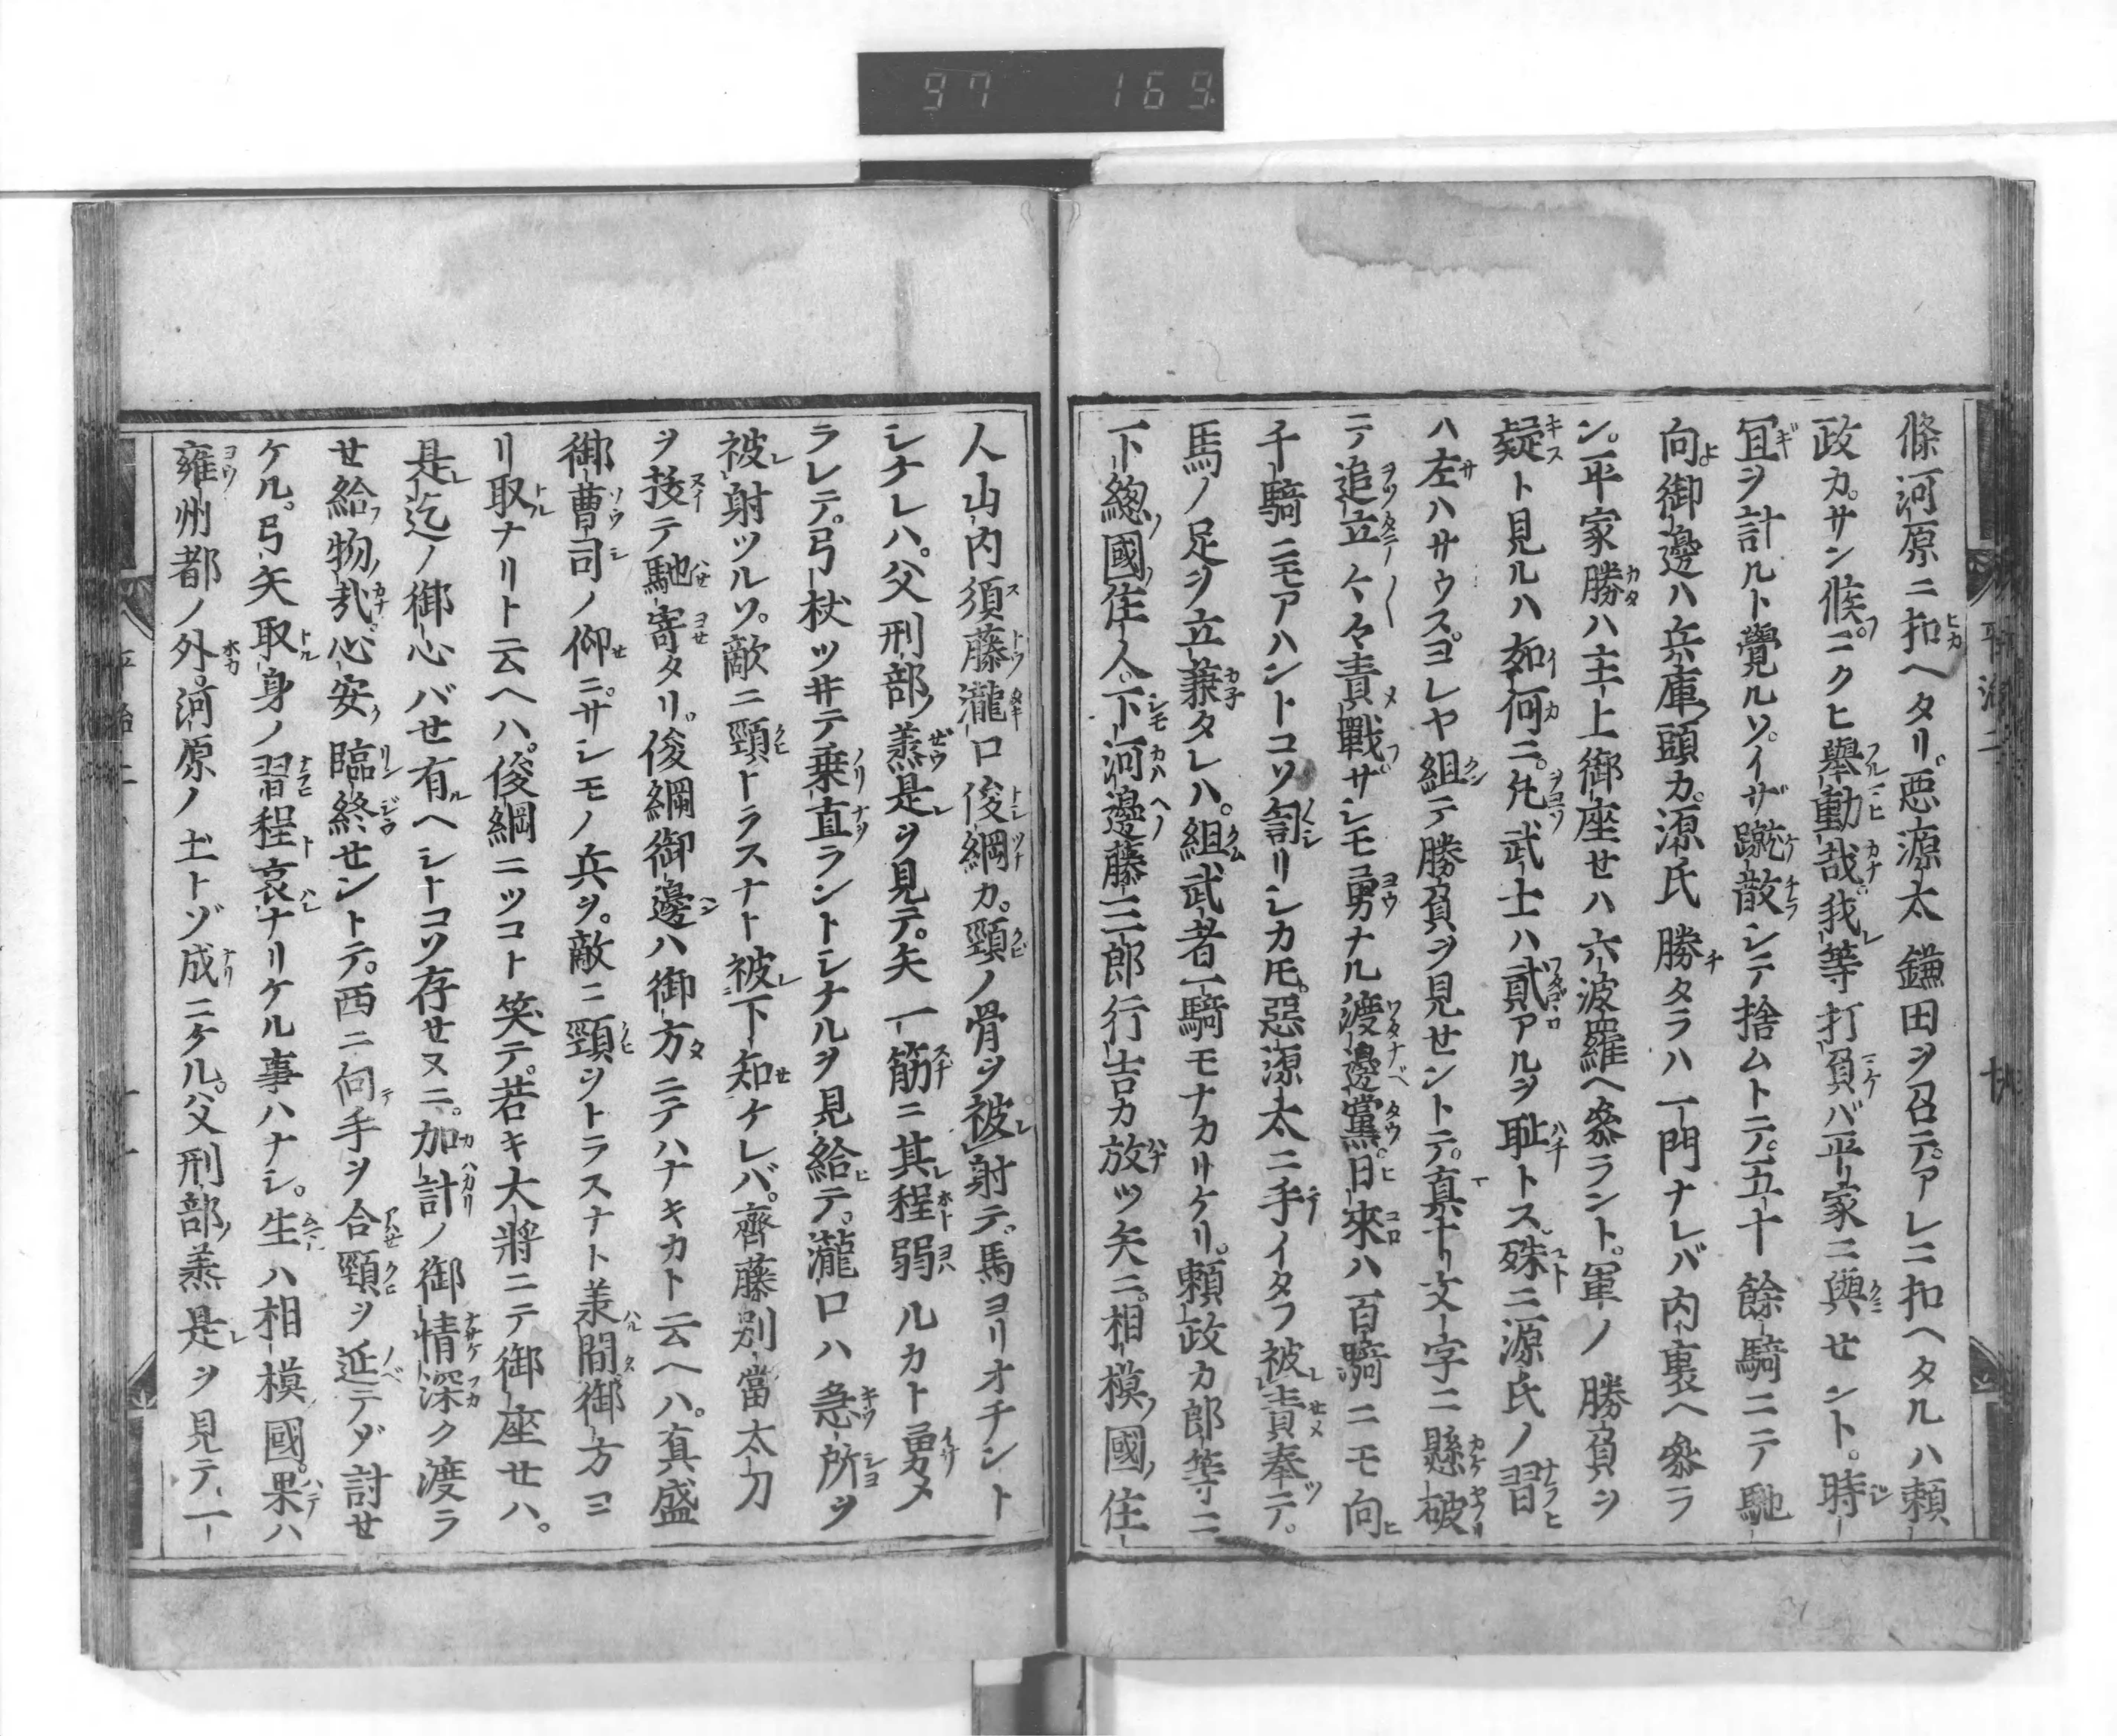 97 169
條河原ニ扣ヘタリ。悪源太鎌田ヲ召テ。アレニ扣ヘタルハ頼
政カ。サン候。ニクヒ舉動哉。我等打負バ平家ニ與セント。時
冝ヲ計ルト覺ルソ。イザ蹴散シテ捨ムトテ。五十餘騎ニテ馳
向。御邊ハ兵庫頭カ。源氏勝タラハ一門ナレバ内裏ヘ參ラ
ン。平家勝ハ主上御座セハ六波羅ヘ參ラント。軍ノ勝負ヲ
疑ト見ルハ如何ニ。凡武士ハ貳アルヲ恥トス。殊ニ源氏ノ習
ハ左ハサウス。ヨレヤ組テ勝負ヲ見セントテ。真十文字ニ懸破
テ追立〱責戰ザシモ勇ナル渡邊黨。日來ハ百騎ニモ向
千騎ニモアハントコソ詈リシカ𪜈。惡源太ニ手イタフ被責奉テ。
馬ノ足ヲ立兼タレハ。組武者一騎モナカリケリ。頼政カ郎等ニ
下總國住人。下河邊藤三郎行吉カ放ツ矢ニ。相模國住
人山内須藤瀧口俊綱カ。頸ノ骨ヲ被射テ。馬ヨリオチント
シケレハ。父刑部羕是ヲ見テ。矢一筋ニ其程弱ルカト勇メ
ラレテ。弓杖ツ井テ乗直ラントシナルヲ見給テ。瀧口ハ急所ヲ
被射ツルソ。敵ニ頸トラスナト被下知ケレバ。齊藤別當太刀
ヲ抜テ馳寄タリ。俊綱御邊ハ御方ニテハナキカト云ヘハ。真盛
御曹司ノ仰ニ。サシモノ兵ヲ。敵ニ頸ヲトラスナト羕間御方ヨ
リ取ナリト云ヘハ。俊綱ニツコト笑テ。若キ大將ニテ御座セハ。
是迄ノ御心バセ有ヘシトコソ存セヌニ。加計ノ御情深ク渡ラ
セ給物哉。心安臨終セントテ。西ニ向手ヲ合頸ヲ延テゾ討セ
ケル。弓矢取身ノ習程哀ナリケル事ハナシ。生ハ相模國。果ハ
雍州都ノ外。河原ノ土トゾ成ニケル。父刑部羕是ヲ見テ。一